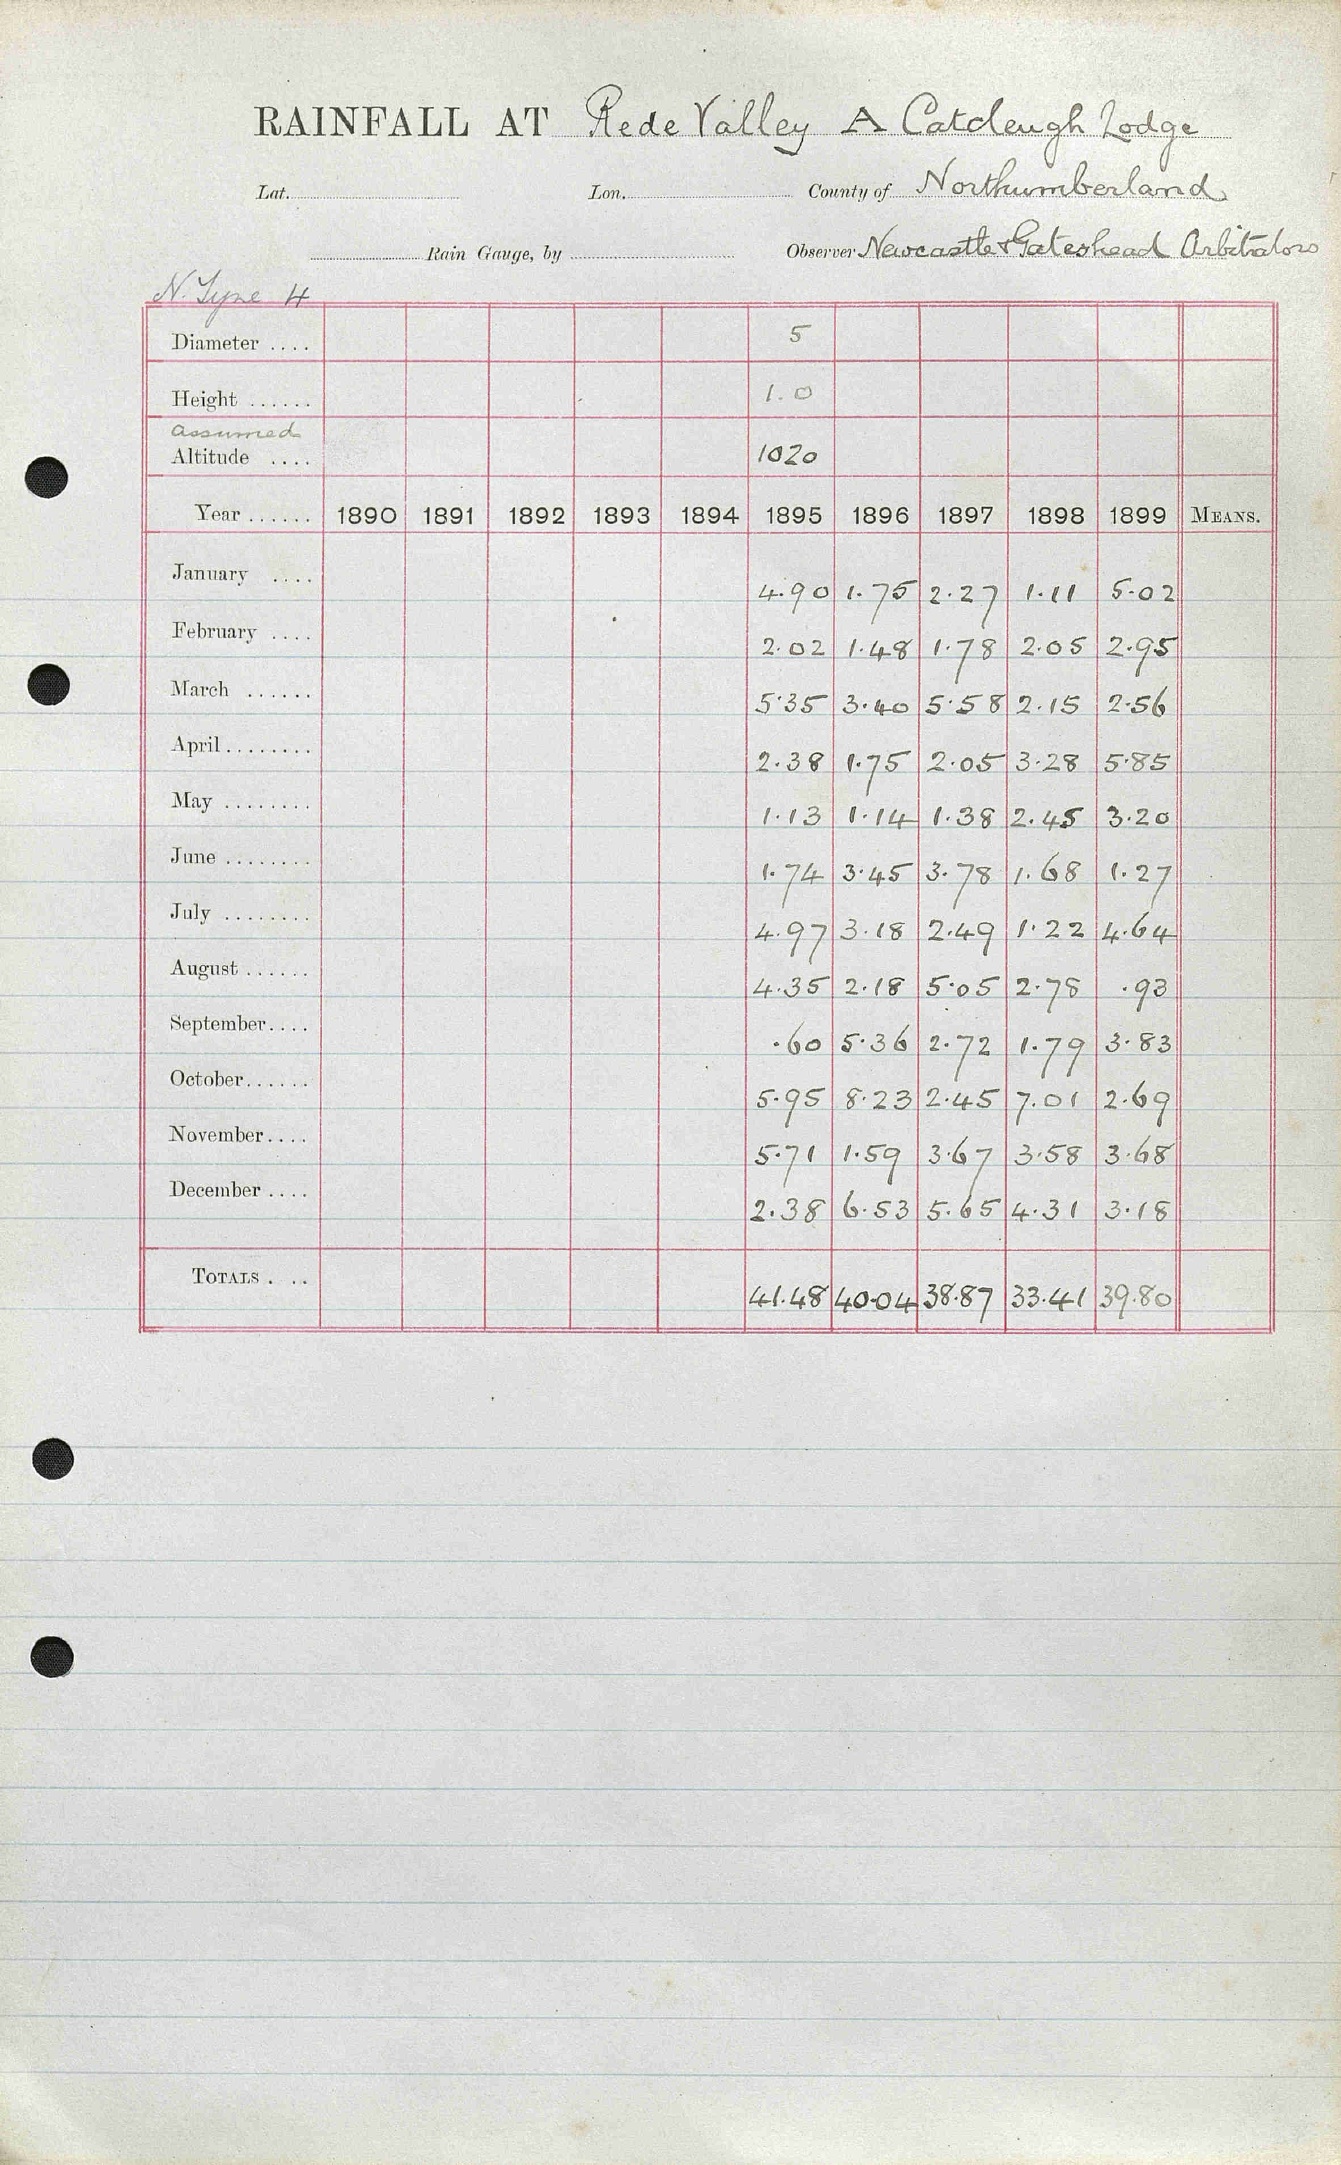 RAINFALL AT Rede Valley A Catcleugh Lodge
Lat. Lon. County of Northumberland
Rain Gauge, by Observer Newcastle & Gateshead Arbitrators
N. Tyne 4
Diameter .... 5
Height ...... 1.0
assumed
Altitude .... 1020
Year ...... 1890 1891 1892 1893 1894 1895 1896 1897 1898 1899 MEANS.
January .... 4.90 1.75 2.27 1.11 5.02
February .... 2.02 1.48 1.78 2.05 2.95
March ...... 5.35 3.40 5.58 2.15 2.56
April ........ 2.38 1.75 2.05 3.28 5.85
May ........ 1.13 1.14 1.38 2.45 3.20
June ........ 1.74 3.45 3.78 1.68 1.27
July ........ 4.97 3.18 2.49 1.22 4.64
August ...... 4.35 2.18 5.05 2.78 .93
September.... .60 5.36 2.72 1.79 3.83
October...... 5.95 8.23 2.45 7.01 2.69
November.... 5.71 1.59 3.67 3.58 3.68
December .... 2.38 6.53 5.65 4.31 3.18
TOTALS . .. 41.48 40.04 38.87 33.41 39.80